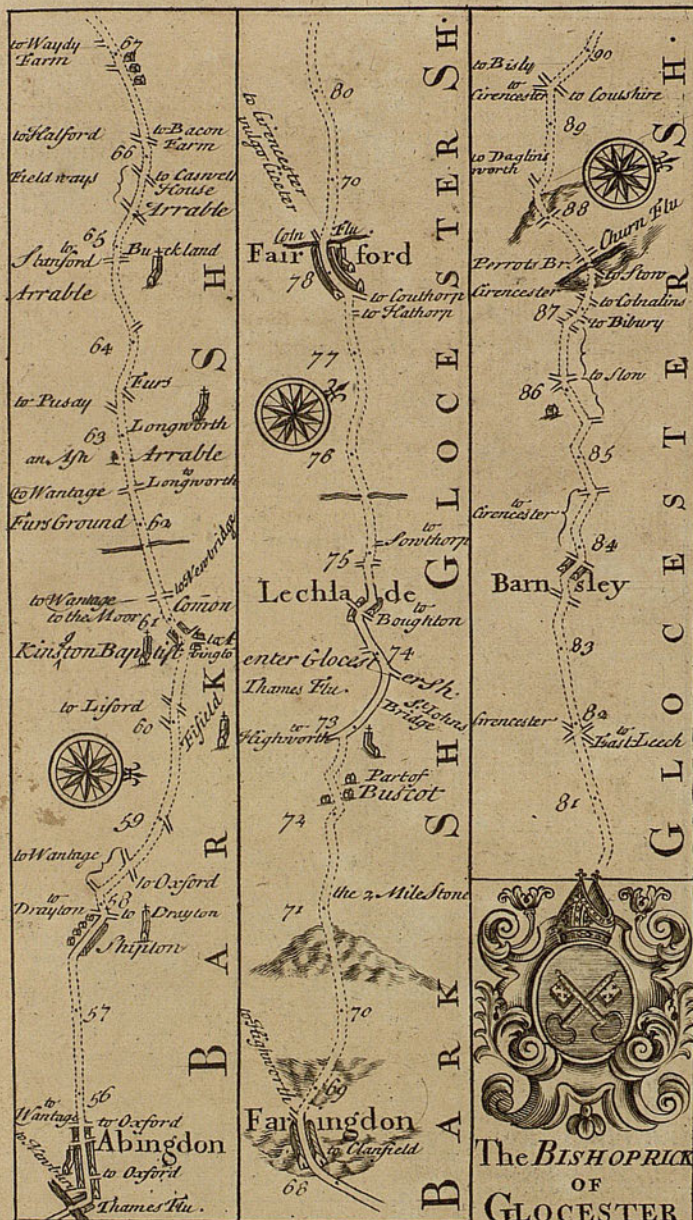 to Waydy
Farm
67
to Halford
to Bacon
Farm
66
Field ways
to Caswell
House
Arrable
65
to
Stanford
Buckland
Arrable
64
Furs
to Pusay
Longworth
63
an Ash
Arrable
to
Longworth
to Wantage
Furs Ground
62
to Newbridge
to Wantage
Comon
to the Moor
61
Kinston Baptist
to Liford
60
Fifield
59
to Wantage
to Oxford
58
to
Drayton
to Drayton
Shipton
57
56
to
Wantage
to Oxford
Abingdon
to Oxford
Thames Flu.
BARK SH
80
to Cirencester
vulgo Ciceter
79
Coln Flu.
Fairford
78
to Couthorp
to Hathorp
77
76
to
Sowthorp
75
Lechlade
to
Boughton
74
enter Glocestersh.
Thames Flu.
St. Johns
Bridge
73
to
Highworth
Part of
Buscot
72
the 2 Mile Stone
71
70
to Highworth
69
Faringdon
to Clanfield
68
BARK SH
GLOCESTER SH.
90
to Bisly
to
Cirencester
to Coutshire
89
to Daglins
worth
88
Churn Flu
Perrots Br.
to Stow
Cirencester
to Colnalins
87
to Bibury
to Slow
86
85
to
Cirencester
84
Barnsley
83
82
Cirencester
to
East Leech
81
GLOCESTER SH.
The BISHOPRICK
OF
GLOCESTER